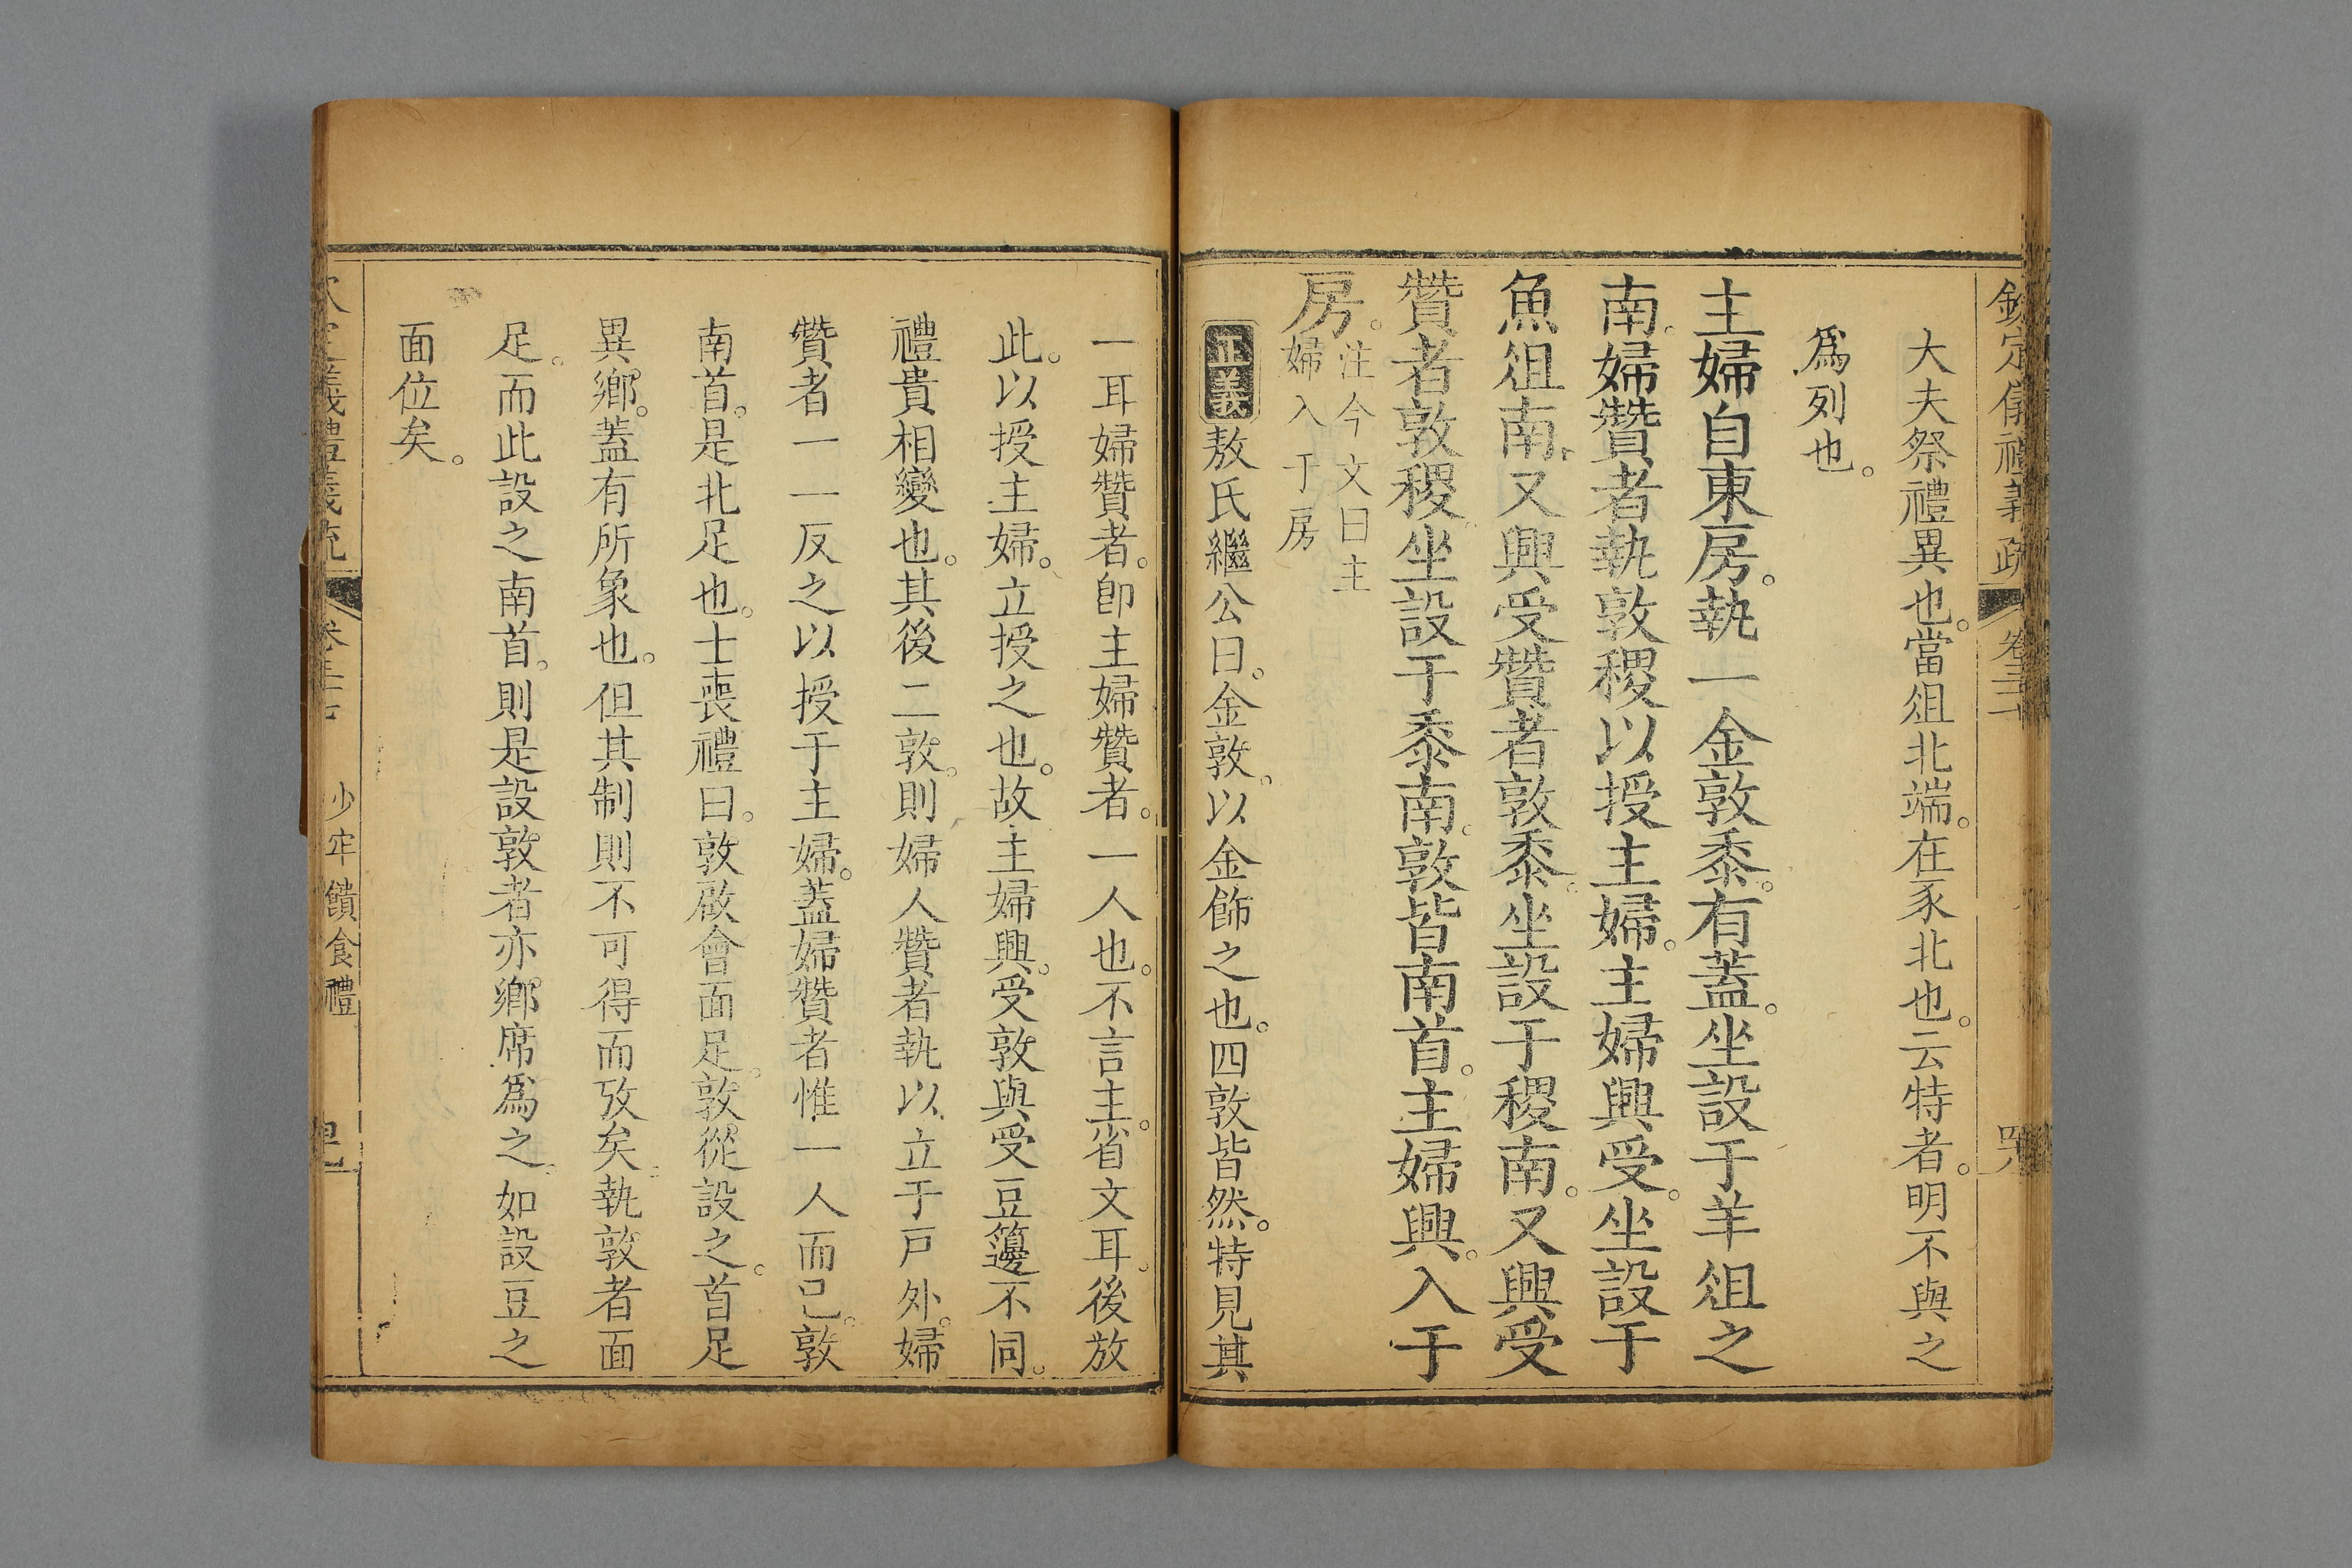 欽定儀禮義疏 卷三十
大夫祭禮異也。當俎北端。在豕北也。云特者。明不與之
爲列也。
主婦自東房。執一金敦黍。有蓋。坐設于羊俎之
南。婦贊者執敦稷以授主婦。主婦興受。坐設于
魚俎南。又興受贊者敦黍。坐設于稷南。又興受
贊者敦稷。坐設于黍南。敦皆南首。主婦興。入于
房。
注今文曰主
婦入于房
正義敖氏繼公曰。金敦。以金飾之也。四敦皆然。特見其
一耳婦贊者。卽主婦贊者。一人也。不言主。省文耳。後放
此。以授主婦。立授之也。故主婦興。受敦與受豆籩不同。
禮貴相變也。其後二敦。則婦人贊者執以立于戸外。婦
贊者一一反之以授于主婦。蓋婦贊者惟一人而已。敦
南首。是北足也。士喪禮曰。敦啟會面足。敦從設之。首足
異鄉。蓋有所象也。但其制則不可得而攷矣。執敦者面
足。而此設之南首。則是設敦者亦鄉席爲之。如設豆之
面位矣。
儀禮義疏 卷三十 少牢饋食禮